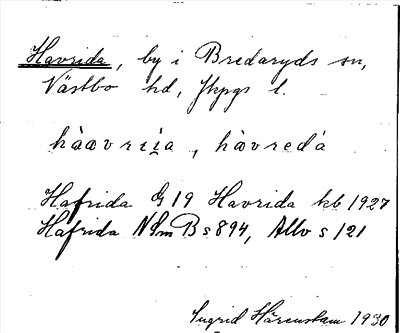 Havrida, by i Bredaryds sn,
Västbo hd, Jkpgs l.
hàavriia, hàvredá
Hafrida G 19 Havrida kb 1927
Hafrida NSmB s 894, Allv s 121
Ingrid Härenstam 1930